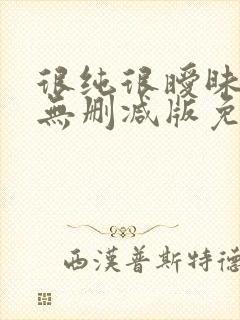 很纯很暧昧
無删减版免
西漢普斯特德